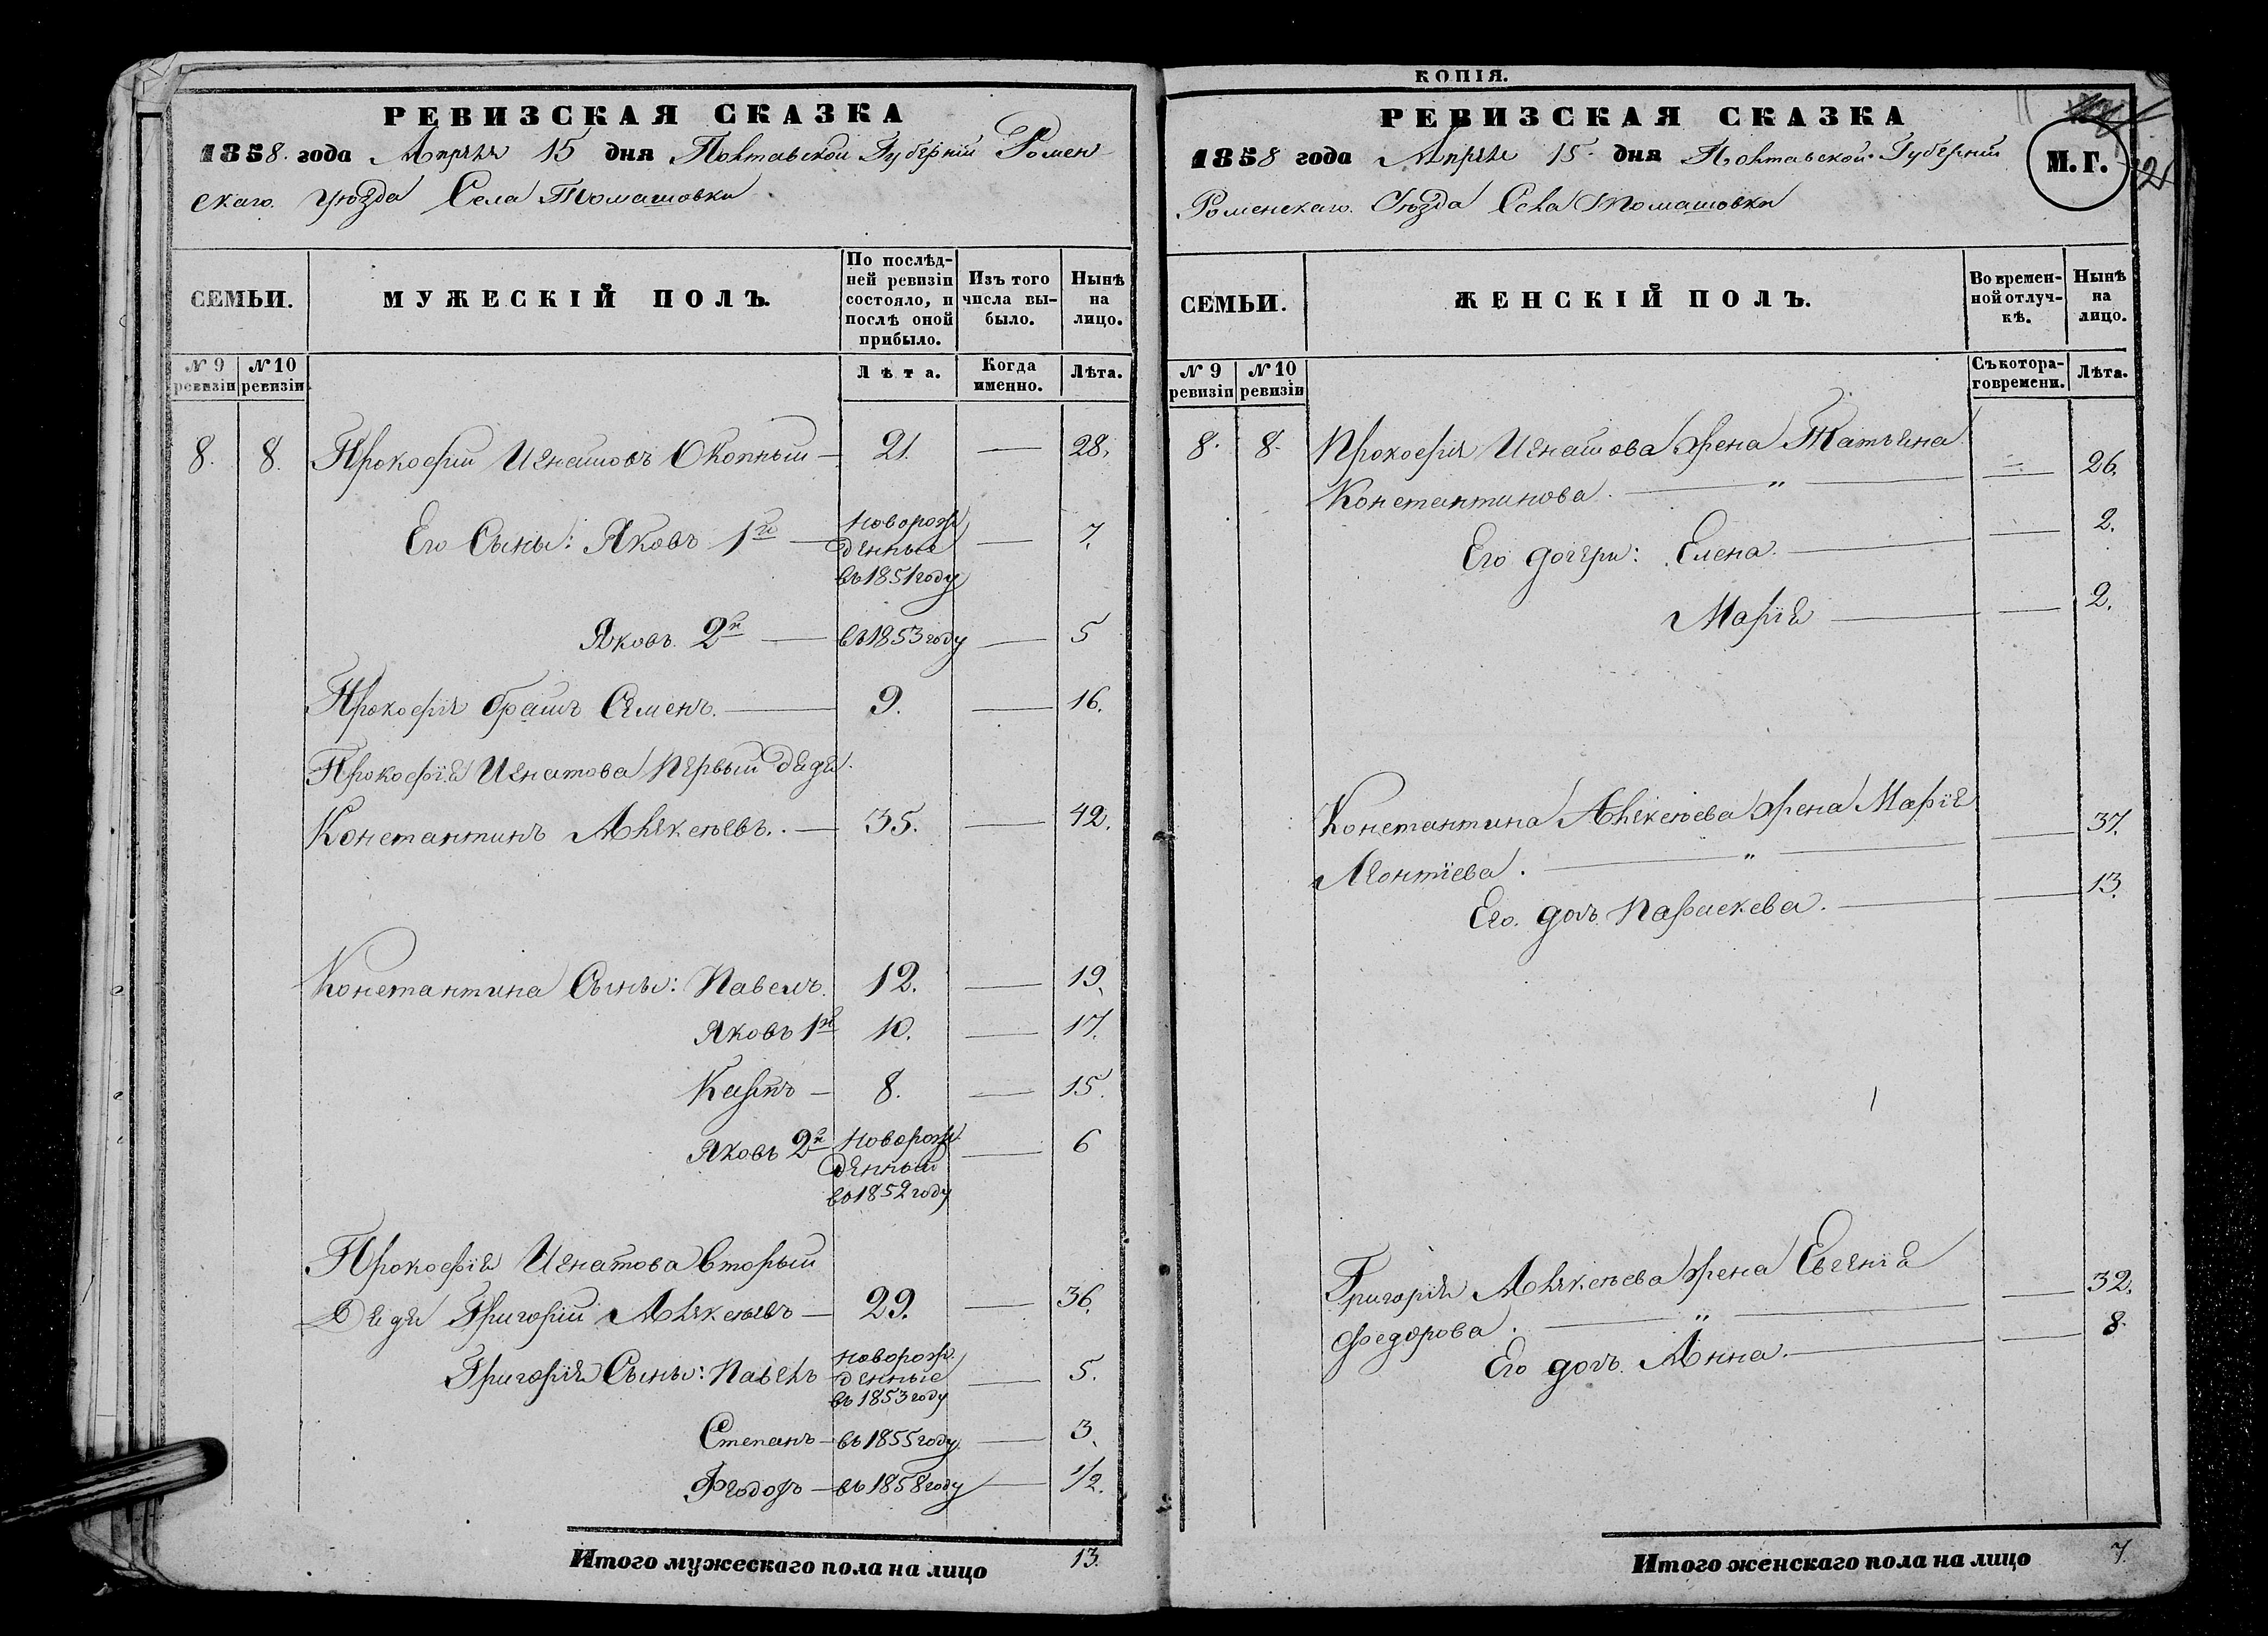 РЕВИЗСКАЯ СКАЗКА
1858. года Апреля 15 дня Полтавской Губерніи Ромен
скаго. Уюзда Села Томашовки
СЕМЬИ.
МУЖЕСКІЙ ПОЛЪ.
По послѣд-
ней ревизіи
состояло, и
послѣ оной
прибыло.
Изъ того
числа вы-
было.
Нынѣ
на
лицо.
№ 9
ревизіи
№ 10
ревизіи.
Лѣта.
Когда
именно.
Лѣта.
8. 8. Прокофій Игнатовъ Окопный — 21. — 28.
Его Сыны: Яковъ 1й — Новорож
денные
въ 1851 году — 7.
Яковъ 2й — въ 1853 году — 5
Прокофія братъ Семенъ. — 9. — 16.
Прокофія Игнатова Первый дядя
Константинъ Алексѣевъ. — 35. — 42.
Константина Сыны: Павелъ. 12. — 19.
Яковъ 1й 10. — 17.
Карпъ — 8. — 15.
Яковъ 2й Новорож
денный
въ 1852 году — 6
Прокофія Игнатова Вторый
Дядя Григорій Алексѣевъ — 29. — 36.
Григорія Сыны: Павелъ — Новорож
денные
въ 1853 году — 5.
Степанъ — въ 1855 году. — 3.
Федоръ — въ 1858 году — 1/2.
Итого мужескаго пола на лицо 13.
КОПІЯ.
РЕВИЗСКАЯ СКАЗКА
1858 года Апреля 15. дня Полтавской Губерніи
Роменскаго. Уюзда Села Томашовки
М.Г.
СЕМЬИ.
ЖЕНСКІЙ ПОЛЪ.
Во времен-
ной отлуч-
кѣ.
Нынѣ
на
лицо.
№ 9
ревизіи
№ 10
ревизіи
Съ котора-
го времени.
Лѣта.
8. 8. Прокофія Игнатова жена Татьяна
Константинова. — " — — 26.
Его дочери: Елена. — — 2.
Марія — — 2.
Константина Алексѣева жена Марія
Леонтіева. — " — — 37.
Его. дочь Параскева. — — 13.
Григорія Алексѣева жена Евгенія
Федорова. — " — — 32.
Его дочь Анна. — — 8.
Итого женскаго пола на лицо 7